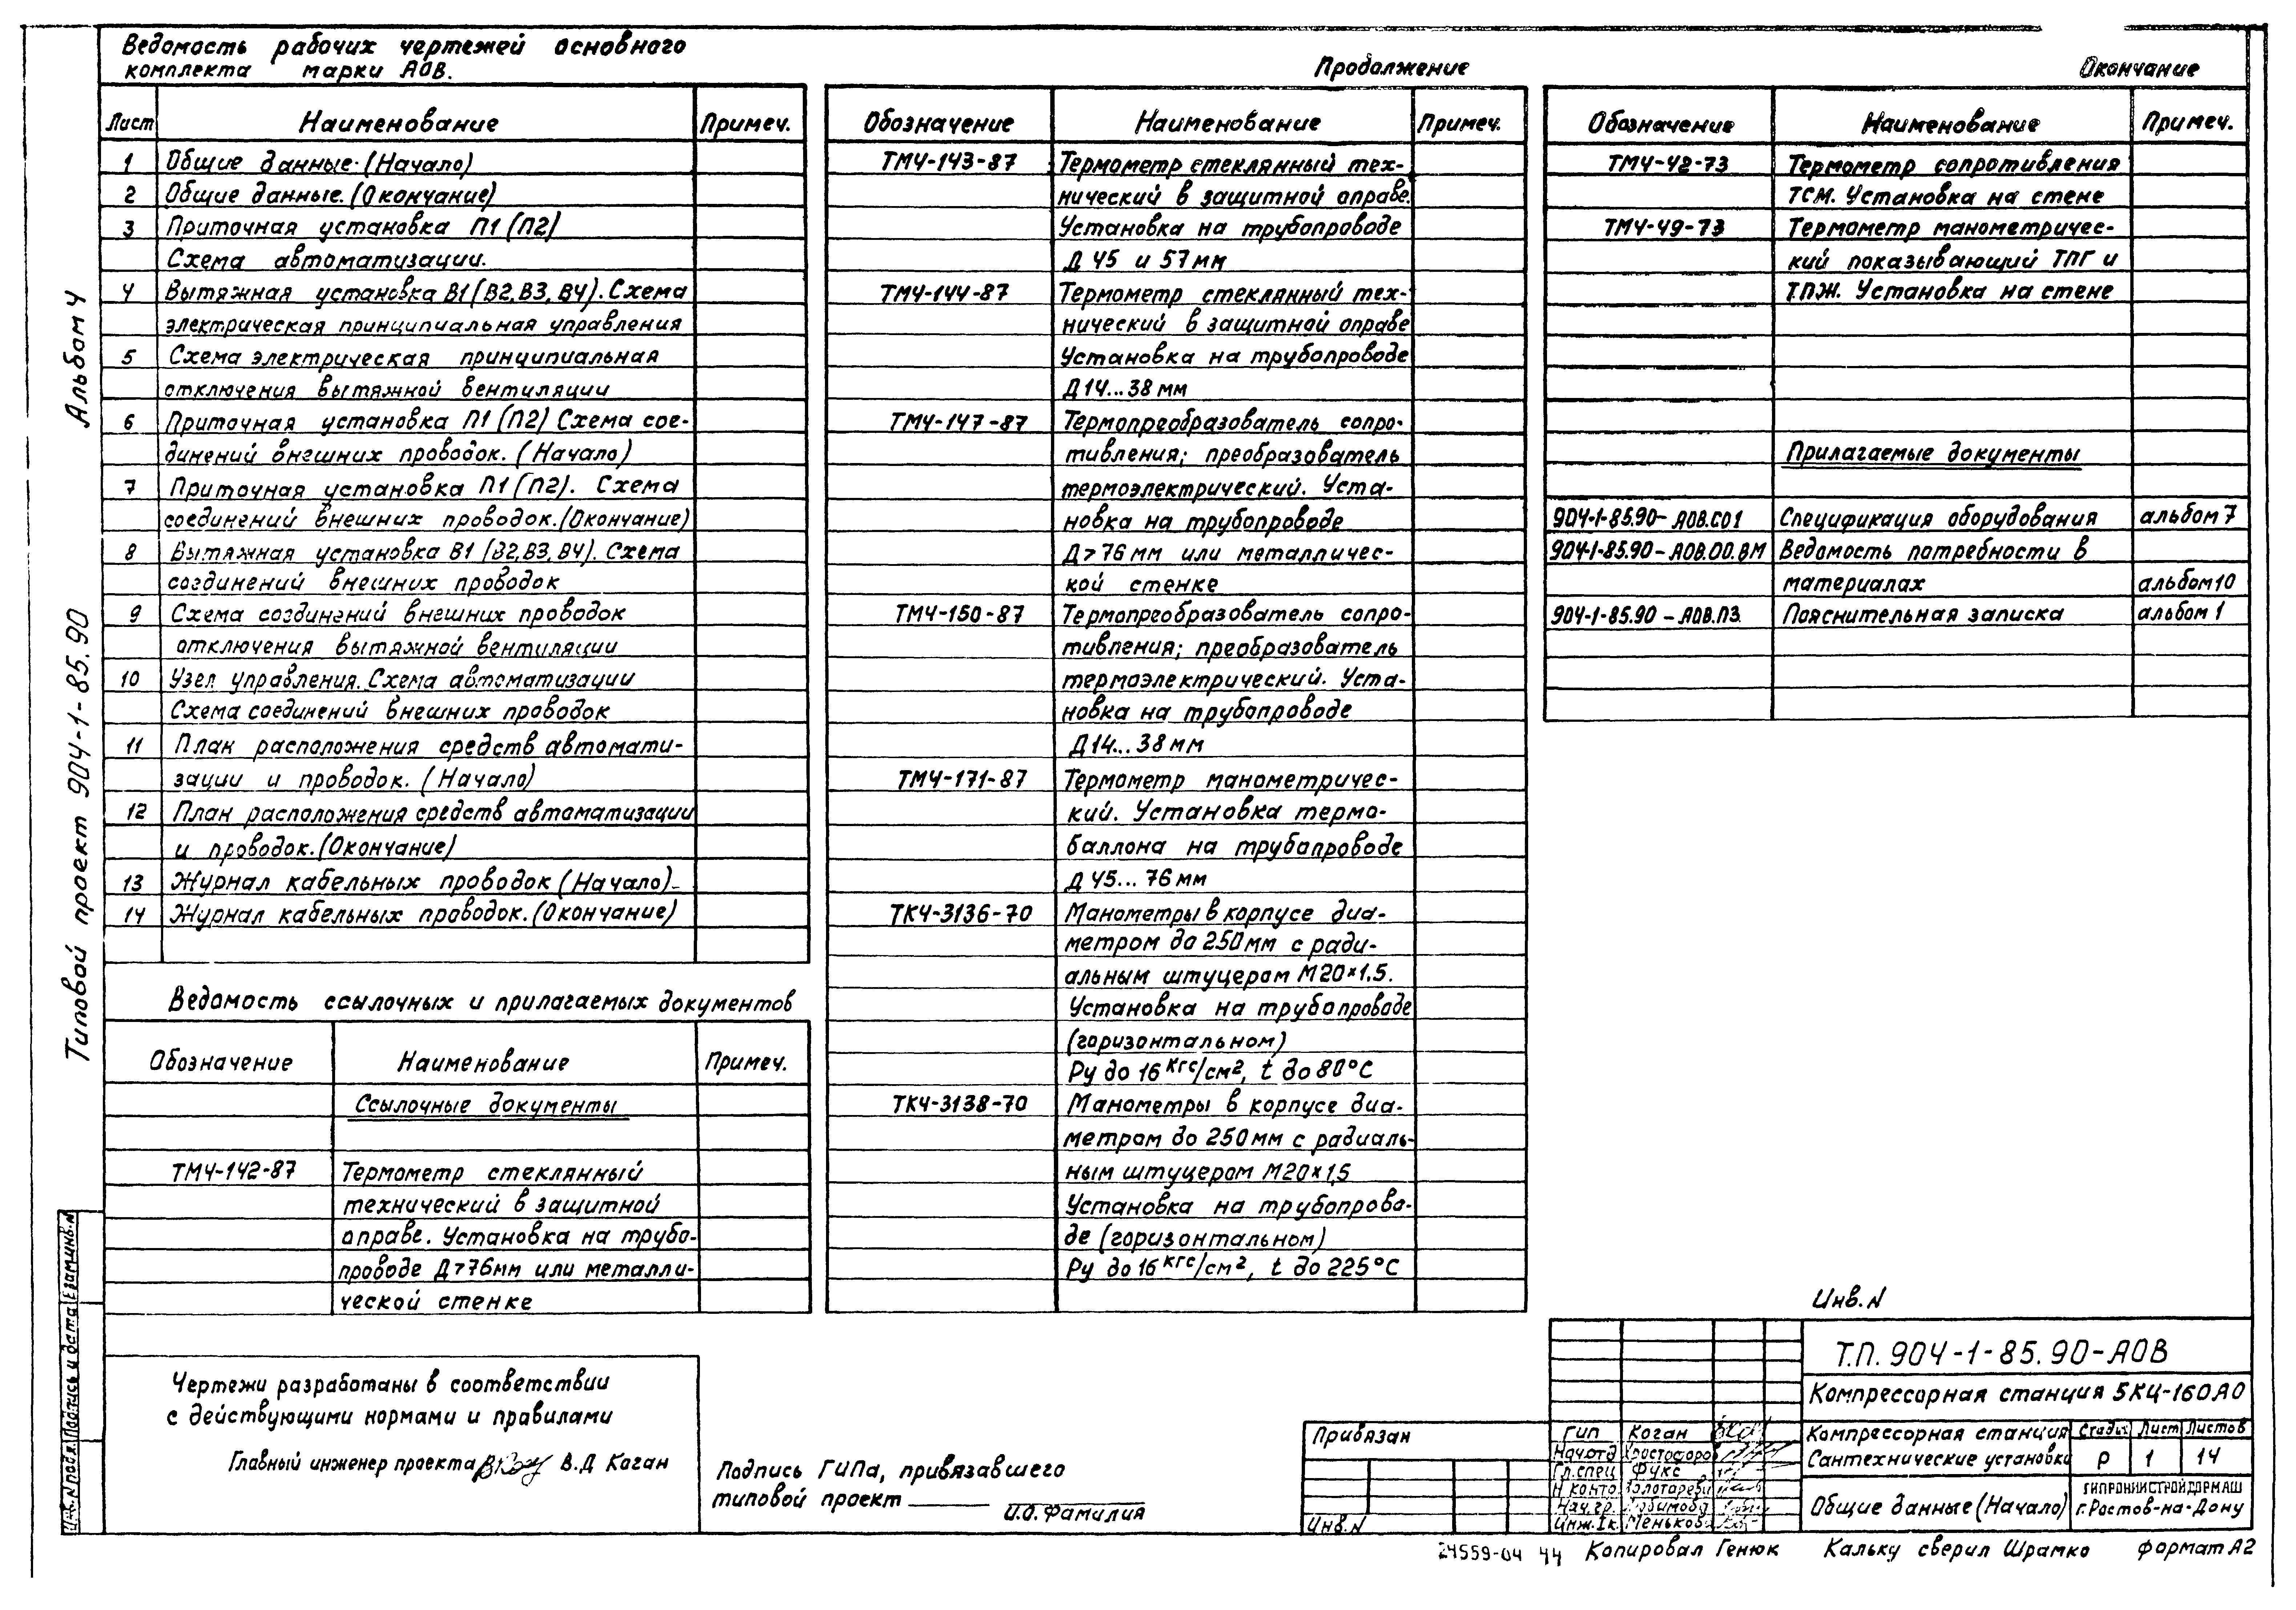 Ведомость рабочих чертежей основного
комплекта марки АОВ.
Лист Наименование Примеч.
1 Общие данные (Начало)
2 Общие данные. (Окончание)
3 Приточная установка П1 (П2)
Схема автоматизации.
4 Вытяжная установка В1 (В2, В3, В4). Схема
электрическая принципиальная управления
5 Схема электрическая принципиальная
отключения вытяжной вентиляции
6 Приточная установка П1 (П2) Схема сое-
динений внешних проводок. (Начало)
7 Приточная установка П1 (П2). Схема
соединений внешних проводок. (Окончание)
8 Вытяжная установка В1 (В2, В3, В4). Схема
соединений внешних проводок
9 Схема соединений внешних проводок
отключения вытяжной вентиляции
10 Узел управления. Схема автоматизации
Схема соединений внешних проводок
11 План расположения средств автомати-
зации и проводок. (Начало)
12 План расположения средств автоматизации
и проводок. (Окончание)
13 Журнал кабельных проводок (Начало)
14 Журнал кабельных проводок. (Окончание)
Ведомость ссылочных и прилагаемых документов
Обозначение Наименование Примеч.
Ссылочные документы
ТМ4-142-87 Термометр стеклянный
технический в защитной
оправе. Установка на трубо-
проводе Д>76мм или металли-
ческой стенке
Продолжение
Обозначение Наименование Примеч.
ТМ4-143-87 Термометр стеклянный тех-
нический в защитной оправе.
Установка на трубопроводе
Д 45 и 57мм
ТМ4-144-87 Термометр стеклянный тех-
нический в защитной оправе
Установка на трубопроводе
Д14...38 мм
ТМ4-147-87 Термопреобразователь сопро-
тивления; преобразователь
термоэлектрический. Уста-
новка на трубопроводе
Д>76 мм или металличес-
кой стенке
ТМ4-150-87 Термопреобразователь сопро-
тивления; преобразователь
термоэлектрический. Уста-
новка на трубопроводе
Д14...38 мм
ТМ4-171-87 Термометр манометричес-
кий. Установка термо-
баллона на трубопроводе
Д 45...76 мм
ТК4-3136-70 Манометры в корпусе диа-
метром до 250мм с ради-
альным штуцером М20×1.5.
Установка на трубопроводе
(горизонтальном)
Ру до 16 кгс/см², t до 80°С
ТК4-3138-70 Манометры в корпусе диа-
метром до 250мм с радиаль-
ным штуцером М20×1,5
Установка на трубопрово-
де (горизонтальном)
Ру до 16 кгс/см², t до 225°С
Окончание
Обозначение Наименование Примеч.
ТМ4-42-73 Термометр сопротивления
ТСМ. Установка на стене
ТМ4-49-73 Термометр манометричес-
кий показывающий ТПГ и
ТПЖ. Установка на стене
Прилагаемые документы
904-1-85.90-АОВ.СО1 Спецификация оборудования альбом 7
904-1-85.90-АОВ.ОО.ВМ Ведомость потребности в
материалах альбом 10
904-1-85.90-АОВ.ПЗ. Пояснительная записка альбом 1
Типовой проект 904-1-85.90 Альбом 4
Инв. N подл. Подпись и дата Взам.инв. N
Чертежи разработаны в соответствии
с действующими нормами и правилами
Главный инженер проекта В.Д Коган
Подпись ГИПа, привязавшего
типовой проект
И.О. Фамилия
Привязан
Инв. N
Инв. N
Т.П. 904-1-85.90-АОВ
Компрессорная станция 5КЦ-160А0
ГИП Коган
Нач.отд
Гл.спец Фукс
Н.контр
Нач.гр.
Инж.Iк.
Компрессорная станция
Сантехнические установки
Стадия Лист Листов
Р 1 14
Общие данные (Начало)
ГИПРОНИИСТРОЙДОРМАШ
г.Ростов-на-Дону
24559-04 44 Копировал Генюк Кальку сверил Шрамко формат А2